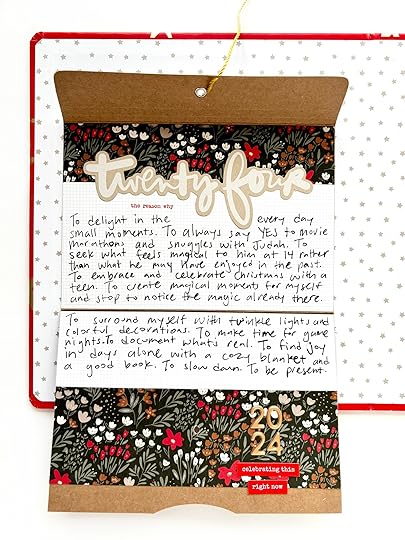 twenty four
the reason why
To delight in the every day
small moments. To always say YES to movie
marathons and snuggles with Judah. To
seek what feels magical to him at 14 rather
than what he may have enjoyed in the past.
To embrace and celebrate Christmas with a
teen. To create magical moments for myself
and stop to notice the magic already there.
To surround myself with twinkle lights and
colorful decorations. To make time for game
nights. To document what's real. To find joy
in days alone with a cozy blanket and
a good book. To slow down. To be present.
20
24
celebrating this
right now